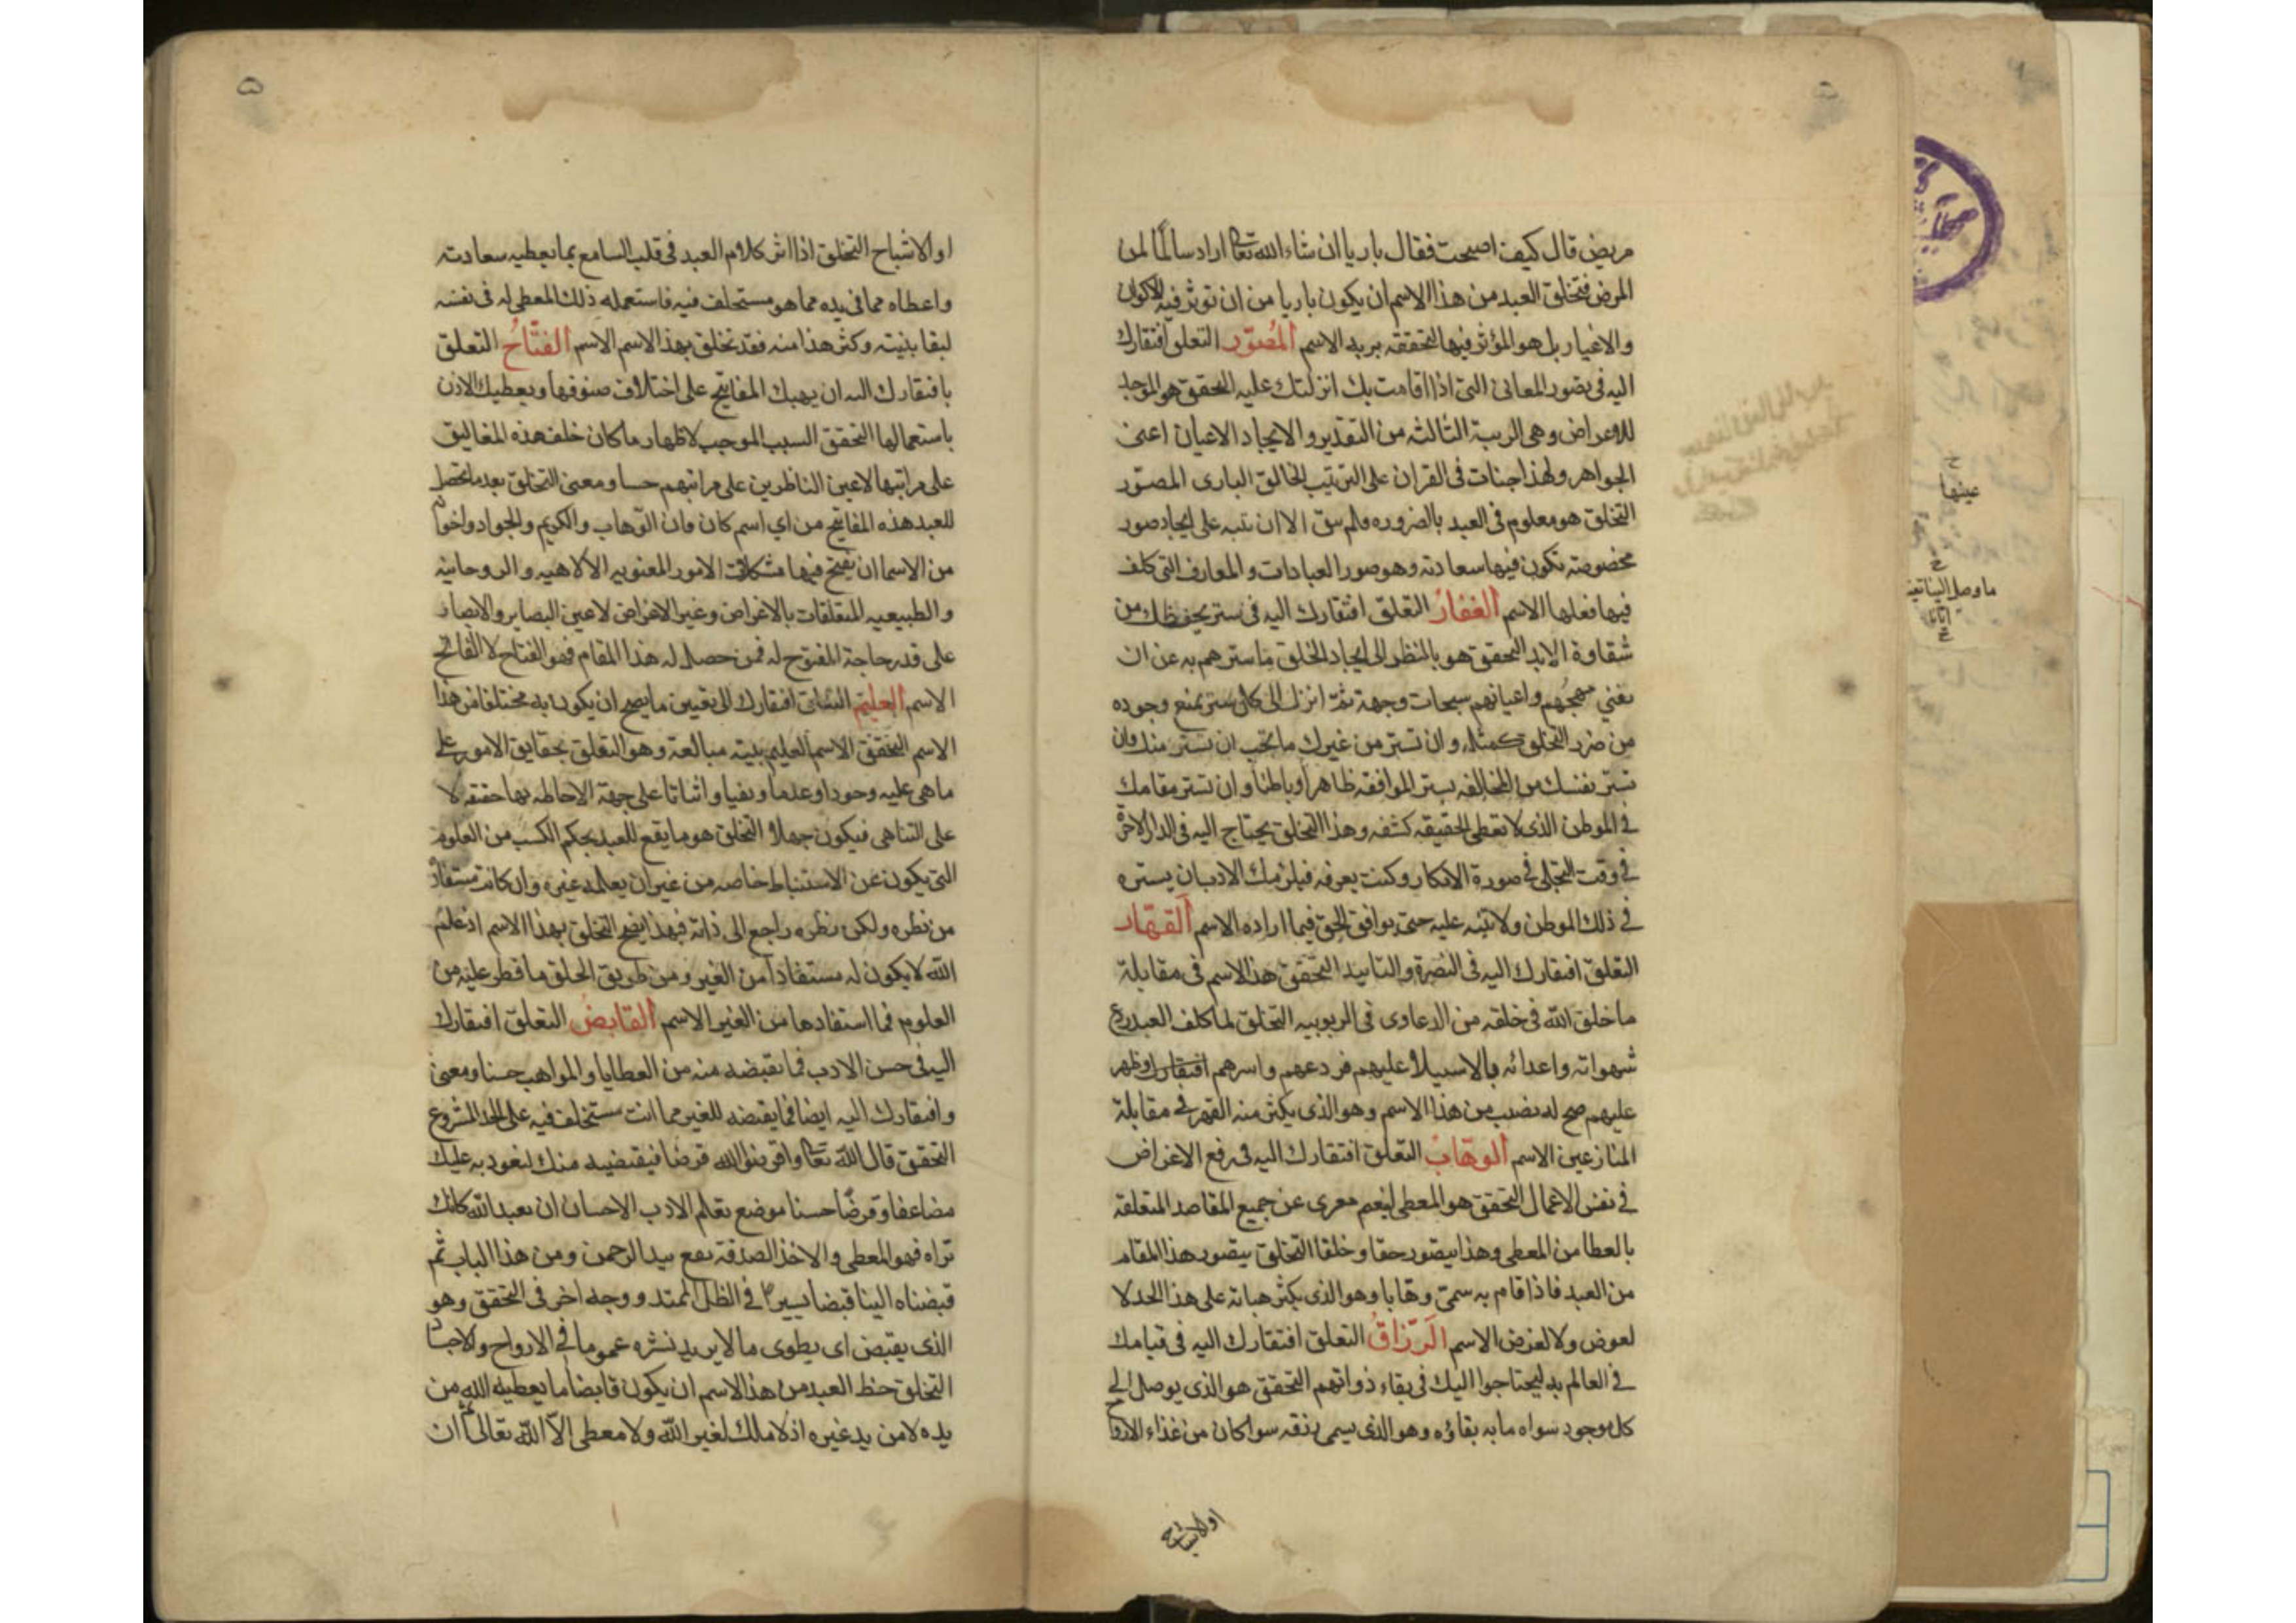 مريض قال كيف اصبحت فقال باريا ان شاء الله تعا اراد سالما لمن
المرض فتخلق العبد من هذا الاسم ان يكون باريا من ان توثر فيه الاكوان
والاغيار بل هو المؤثر فيها لتحققه بربه الاسم المصور التعلق افتقارك
اليه فى تصور المعانى التى اذا اقامت بك انزلتك عليه التحقق هو الموجد
للاعراض وهى الرتبة الثالثه من التقدير والايجاد الاعيان اعنى
الجواهر ولهذا جئات فى القران على الترتيب الخالق البارى المصور
التخلق هو معلوم فى العبد بالضروره فلم يبق الا ان ننبه على ايجاد صور
مخصوصة تكون فيها سعادته وهو صور العبادات والمعارف التى كلف
فيها فعلها الاسم الغفار التعلق افتقارك اليه فى ستر يحفظك من
شقاوة الابد التحقق هو بالنظر الى ايجاد الخلق ما سترهم به عن ان
تفني مهجهم واعيانهم سبحات وجهه ثمة انزل الى كل ستر يمنع وجوده
من ضرر التخلق كمثله وان تستر من غيرك ما يجب ان يستر منك وان
تستر نفسك من المخالفه بستر الموافقه ظاهرا وباطنا وان تستر مقامك
فى الموطن الذى لا تعطى الحقيقه كشفه وهذا التخلق يحتاج اليه فى الدار الاخرة
فى وقت التجلى فى صورة الانكار وكنت بعرفه فيلزمك الادب ان يستره
فى ذلك الموطن ولا تنبه عليه حتى يوافق الحق فيما اراده الاسم القهار
التعلق افتقارك اليه فى النصرة والتاييد التحقق هذا الاسم فى مقابلة
ما خلق الله فى خلقه من الدعاوى فى الربوبيه التخلق لما كلف العبد ردع
شهواته واعدائه بالاستيلا عليهم فردعهم واسرهم افتقارك وظهر
عليهم صح له نصيب من هذا الاسم وهو الذى يكثر منه القهر فى مقابلة
المنازعين الاسم الوهاب التعلق افتقارك اليه فى رفع الاغراض
فى نفس الاعمال التحقق هو المعطى لينعم معرى عن جميع المقاصد المتعلقه
بالعطا من المعطى وهذا يتصور حقا وخلقا التخلق يتصور هذا المقام
من العبد فاذا قام به سمى وهابا وهو الذى يكثر هباته على هذا الحد لا
لعوض ولا لغرض الاسم الرزاق التعلق افتقارك اليه فى قيامك
فى العالم به ليحتاجوا اليك فى بقاء ذواتهم التحقق هو الذى يوصل الى
كل موجود سواه ما به بقاؤه وهو الذى يسمى رزقه سوا كان من غذاء الارواح
اولاشباح
عينها
ما وصل الينا
او الاشباح التخلق اذا اثر كلام العبد فى قلب السامع بما يعطيه سعادته
واعطاه مما فى يده مما هو مستخلف فيه فاستعمله ذلك المعطى له فى نفسه
لبقا بنيته وكثر هذا منه فقد تخلق بهذا الاسم الاسم الفتاح التعلق
بافتقارك اليه ان يهبك المفاتيح على اختلاف صنوفها ويعطيك الاذن
باستعمالها التحقق السبب الموجب لاظهار ما كان خلف هذه المغاليق
على مراتبها لاعين الناظرين على مراتبهم حسا ومعنى التخلق بعد ما تحصل
للعبد هذه المفاتيح من اي اسم كان فان الوهاب والكريم والجواد واخواتها
من الاسما ان يفتح فيها مشكلات الامور المعنويه الالاهيه والروحانيه
والطبيعيه المتعلقات بالاغراض وغير الاغراض لاعين البصاير والابصار
على قدر حاجة المفتوح له فمن حصل له هذا المقام فهو الفتاح لا الفاتح
الاسم العليم التعلق افتقارك الى تعيين ما يصح ان يكون به متخلقا من هذا
الاسم التحقق الاسم العليم بنيته مبالغة وهو التعلق بحقايق الامور على
ما هى عليه وجودا وعدما ونفيا واثباتا على جهة الاحاطه بها حققه لا
على التناهى فيكون جهلا التخلق هو ما يقع للعبد بحكم الكسب من العلوم
التى يكون عن الاستنباط خاصه من غير ان يعلمه غيره وان كانت مستفادة
من نظره ولكن نظره راجع الى ذاته فبهذا يصح التخلق بهذا الاسم اذ علم
الله لا يكون له مستفادا من الغير ومن طريق الخلق ما فطر عليه من
العلوم فما استفادها من الغير الاسم القابض التعلق افتقارك
اليه فى حسن الادب فما تقبضه منه من العطايا والمواهب حسنا ومعنى
وافتقارك اليه ايضا فما يقبضه للغير مما انت مستخلف فيه على الحد المشروع
التحقق قال الله تعا واقرضوا الله قرضا فيقتضيه منك ليعود به عليك
مضاعفا وقرضا حسنا موضع تعلم الادب الاحسان ان تعبد الله كانك
تراه فهو المعطى والاخذ الصدقة تقع بيد الرحمن ومن هذا الباب ثم
قبضناه الينا قبضا يسيرا فى الظل الممتد ووجه اخر فى التحقق وهو
الذى يقبض اى يطوى ما لا يريد نشره عموما فى الارواح والاجساد
التخلق حظ العبد من هذا الاسم ان يكون قابضا ما يعطيه الله من
يده لا من يد غيره اذ لا مالك لغير الله ولا معطى الا الله تعالى ثم ان